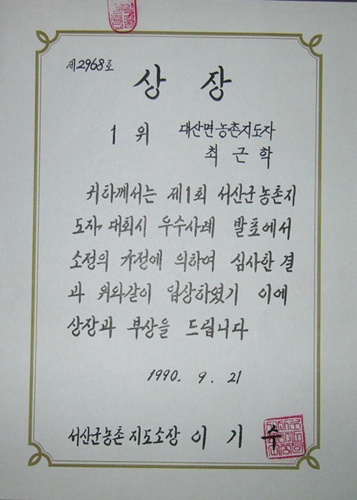 제2968호
상 장
1 위 대산면 농촌지도자
최 근 학
귀하께서는 제1회 서산군 농촌지
도자 대회시 우수사례 발표에서
소정의 규정에 의하여 심사한 결
과 위와같이 입상하였기 이에
상장과 부상을 드립니다
1990. 9. 21
서산군농촌지도소장 이 기 수